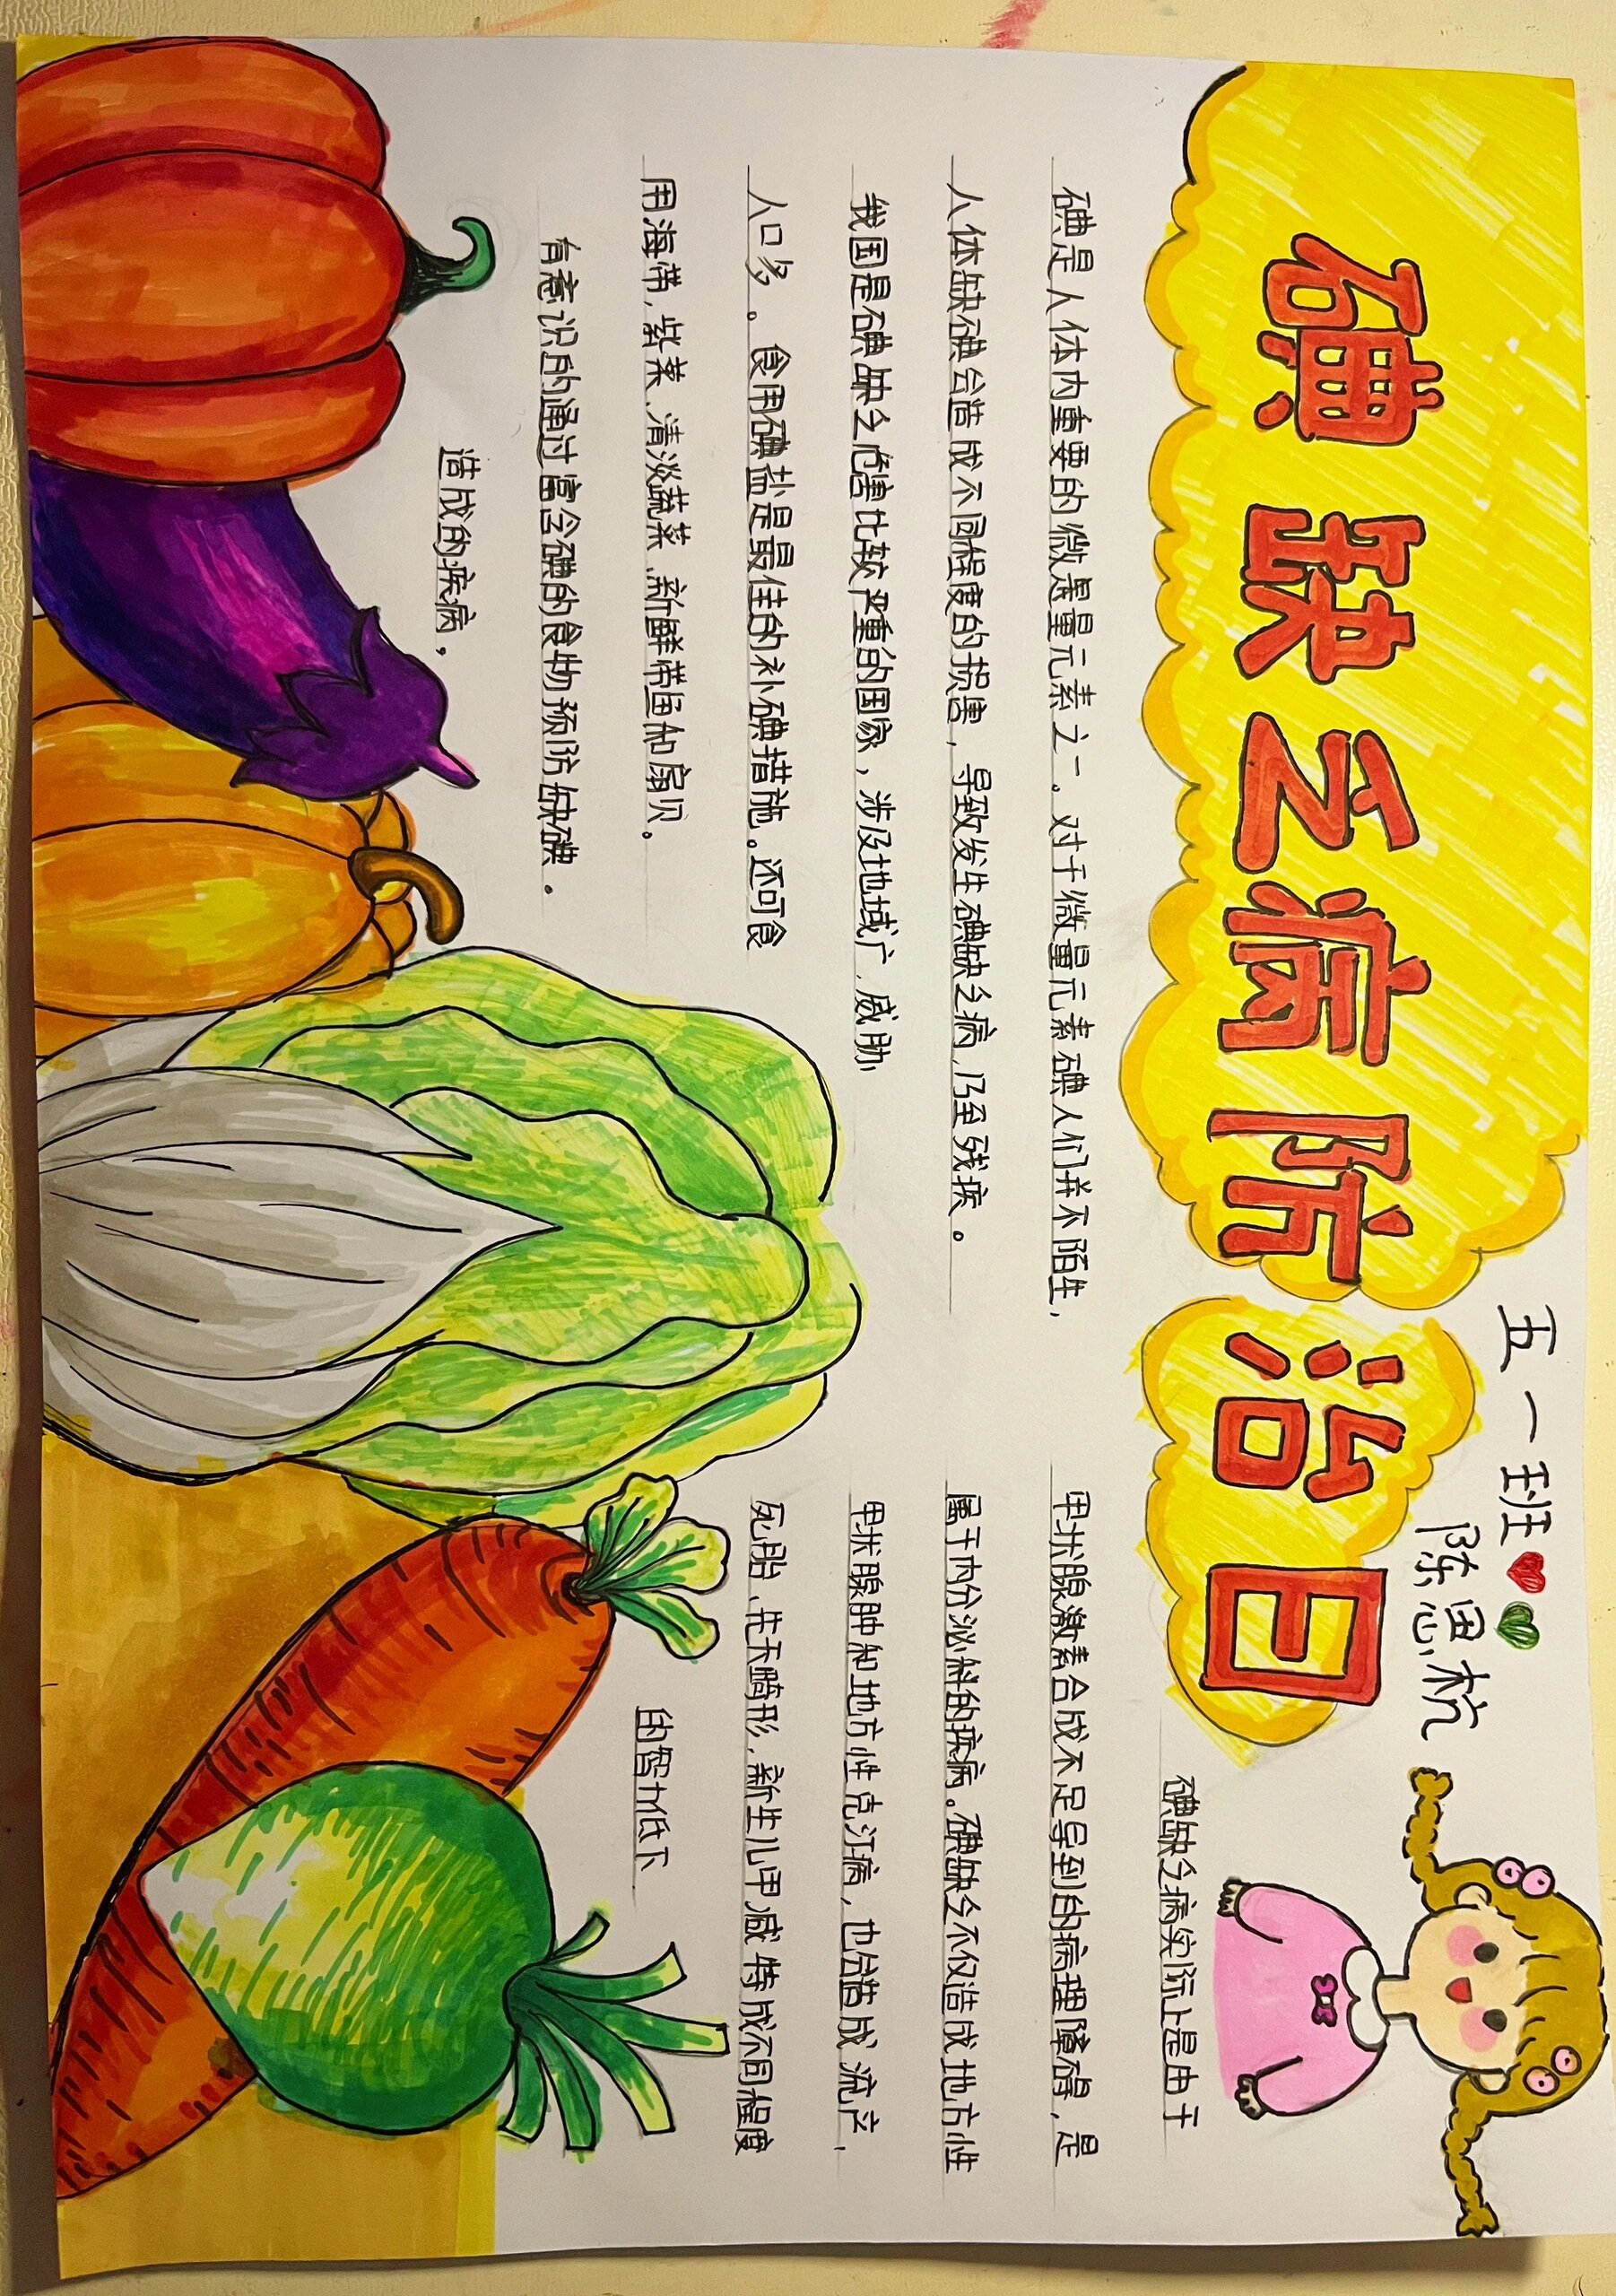 碘缺乏病防治日
五一班
陈思杭
碘是人体内重要的微是量元素之一。对于微量元素碘人们并不陌生,
人体缺碘会造成不同程度的损害,导致发生碘缺乏病,乃至残疾。
我国是碘缺乏危害比较严重的国家,涉及地域广,威胁
人口多。食用碘盐是最佳的补碘措施。还可食
用海带,紫菜,清淡蔬菜,新鲜带鱼和扇贝。
有意识的通过富含碘的食物预防缺碘。
造成的疾病,
碘缺乏病实际上是由于
甲状腺激素合成不足导到的病理障碍,是
属于内分泌科的疾病。碘缺乏不仅造成地方性
甲状腺肿和地方性克汀病,也会造成流产,
死胎,先天畸形,新生儿甲减等成不同程度
的智力低下.